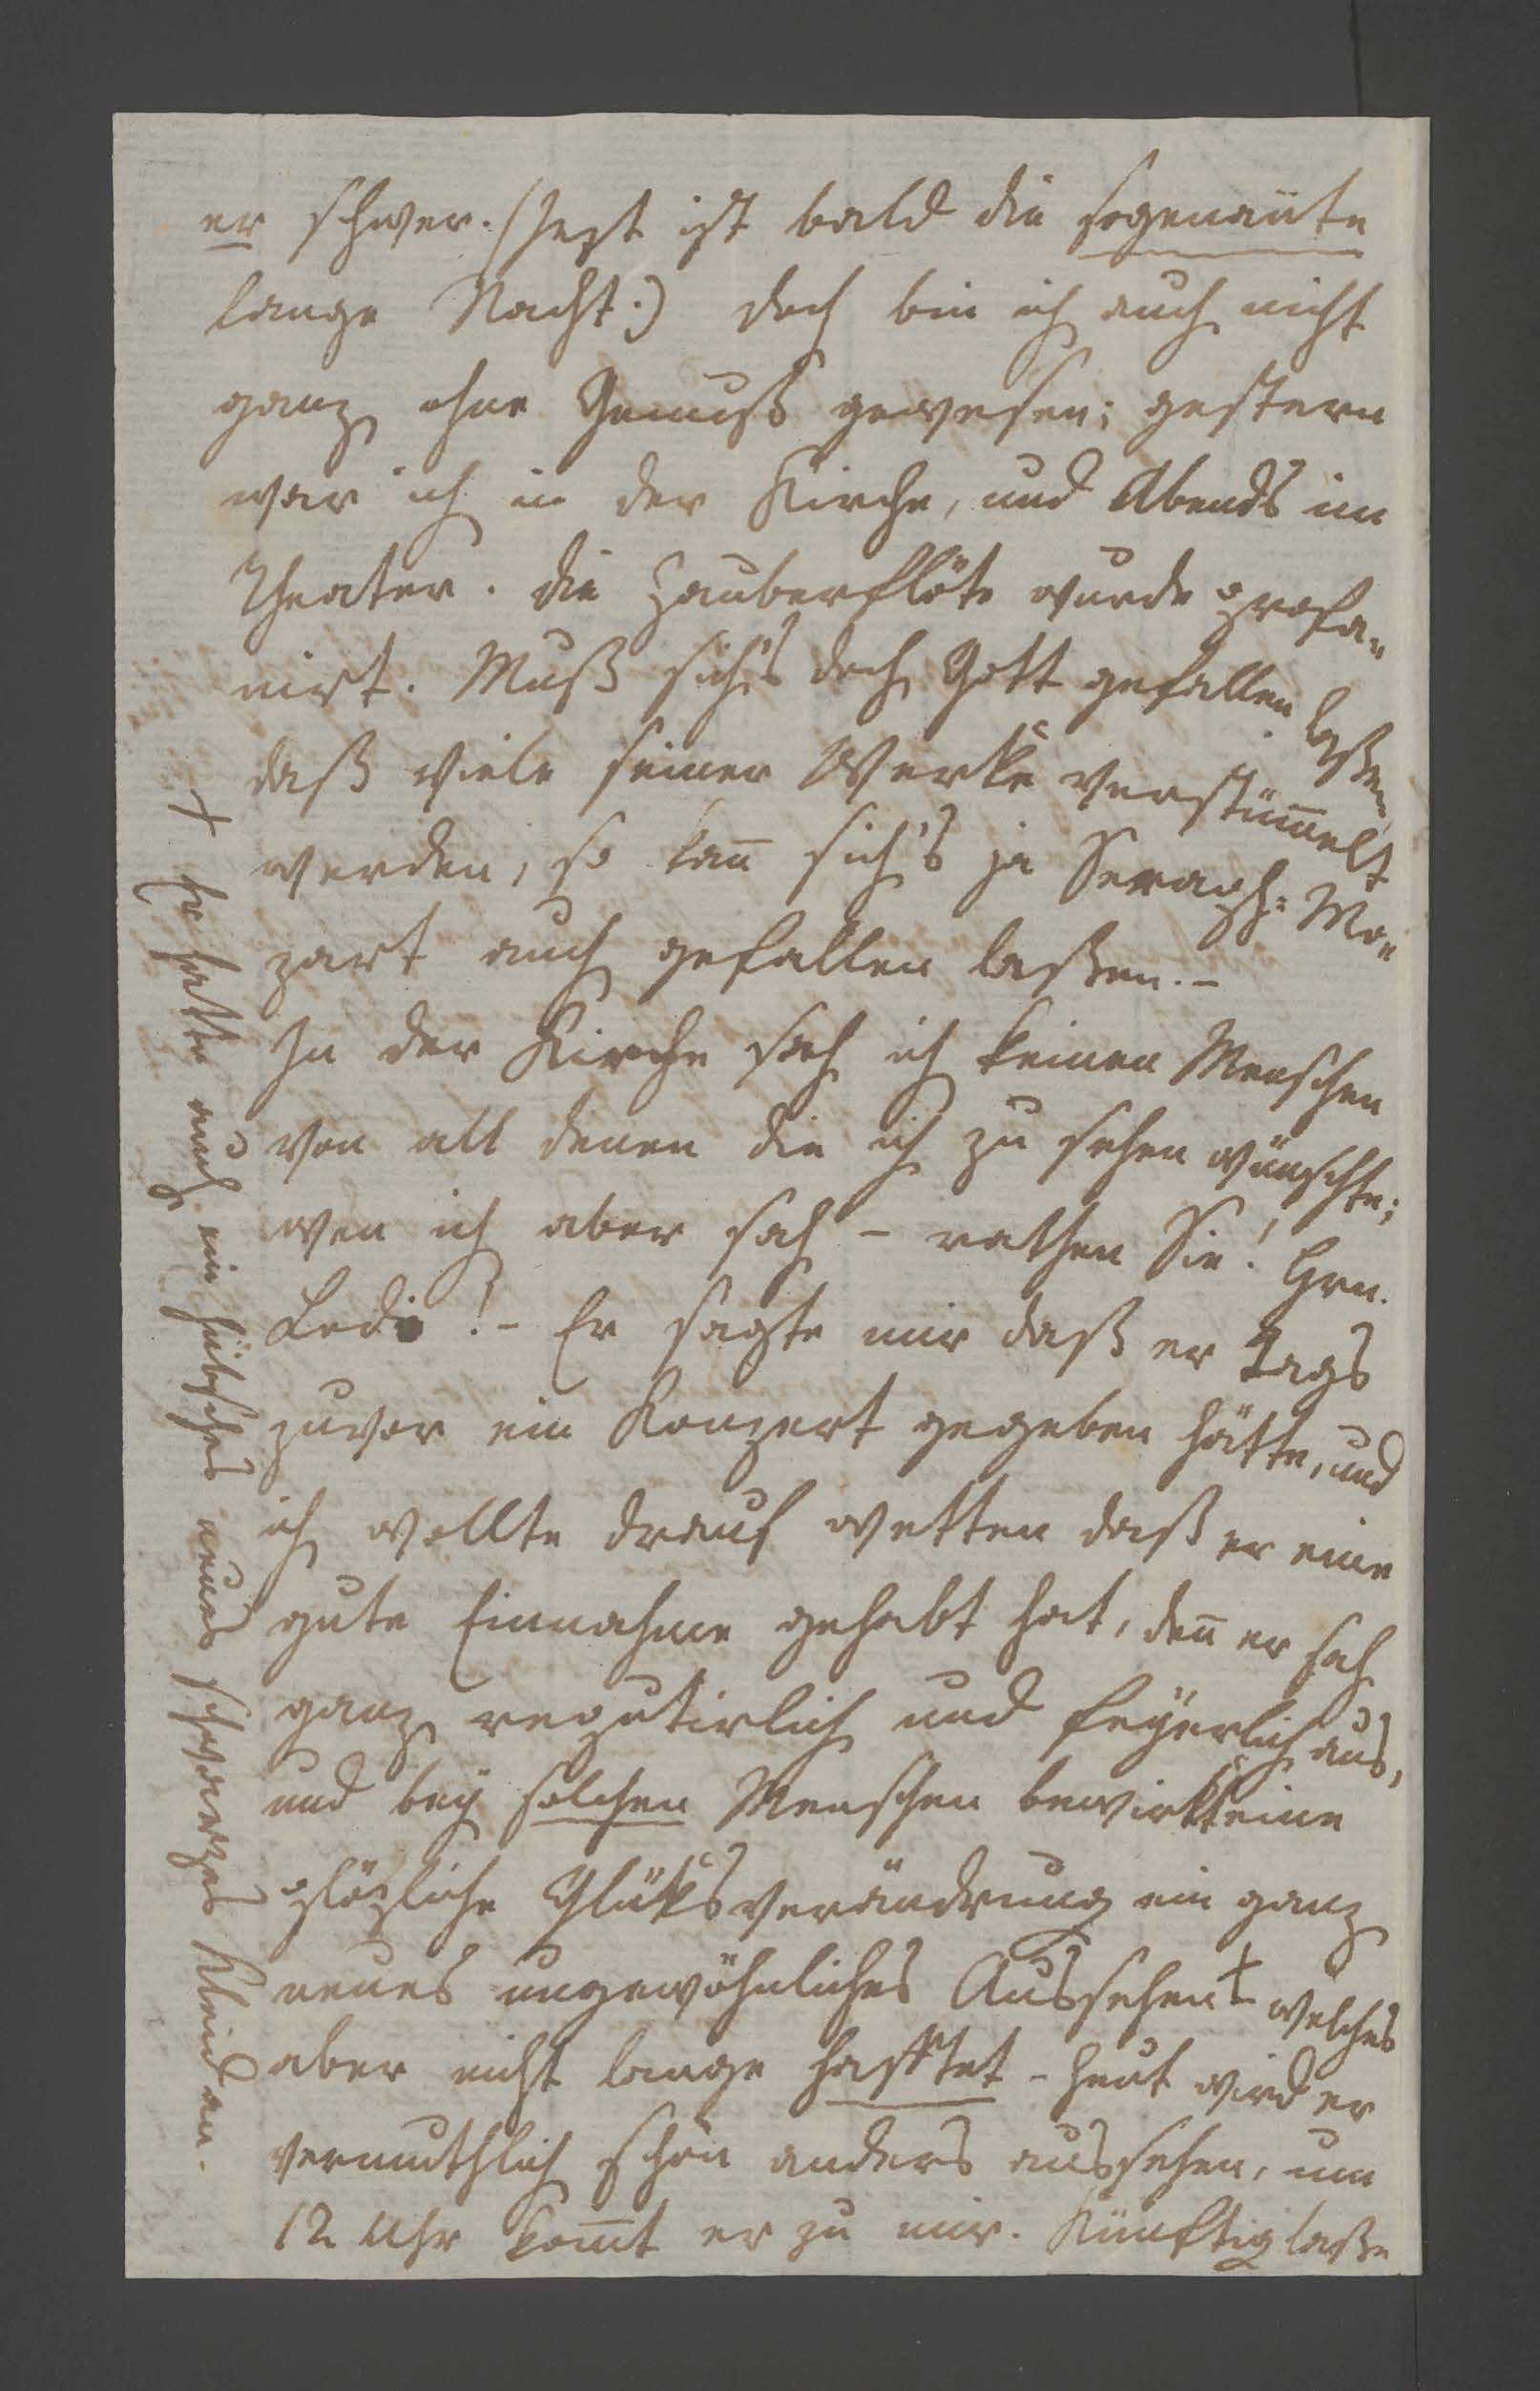 er schwer. (Jezt ist bald die sogenañte
lange Nacht:) doch bin ich auch nicht
ganz ohne Genuß gewesen; gestern
war ich in der Kirche, und Abends im
Theater. die Zauberflöte wurde profa„
nirt. Muß sich's doch Gott gefallen laßen
daß viele seiner Werke verstüm̄elt
werden, so kan̄ sich's ja Seraph: Mo„
zart auch gefallen laßen. –
In der Kirche sah ich keinen Menschen
von all denen die ich zu sehen wünschte;
wen ich aber sah – rathen Sie! Hrn.
! – Er sagte mir daß er Tags
zuvor ein Konzert gegeben hätte, und
ich wollte drauf wetten daß er eine
gute Einnahme gehabt hat, den̄ er sah
ganz reputirlich und feyerlich aus,
und bey solchen Menschen bewirkt eine
plözliche Glüksverändrung ein ganz
neues ungewöhnliches Aussehen + welches
aber nicht lange hafftet – heut wird er
vermuthlich schon anders aussehen, um
12 Uhr kom̄t er zu mir. Künftig laße
+ Er hatte auch ein hübsches neues schwarzes Kleid an.